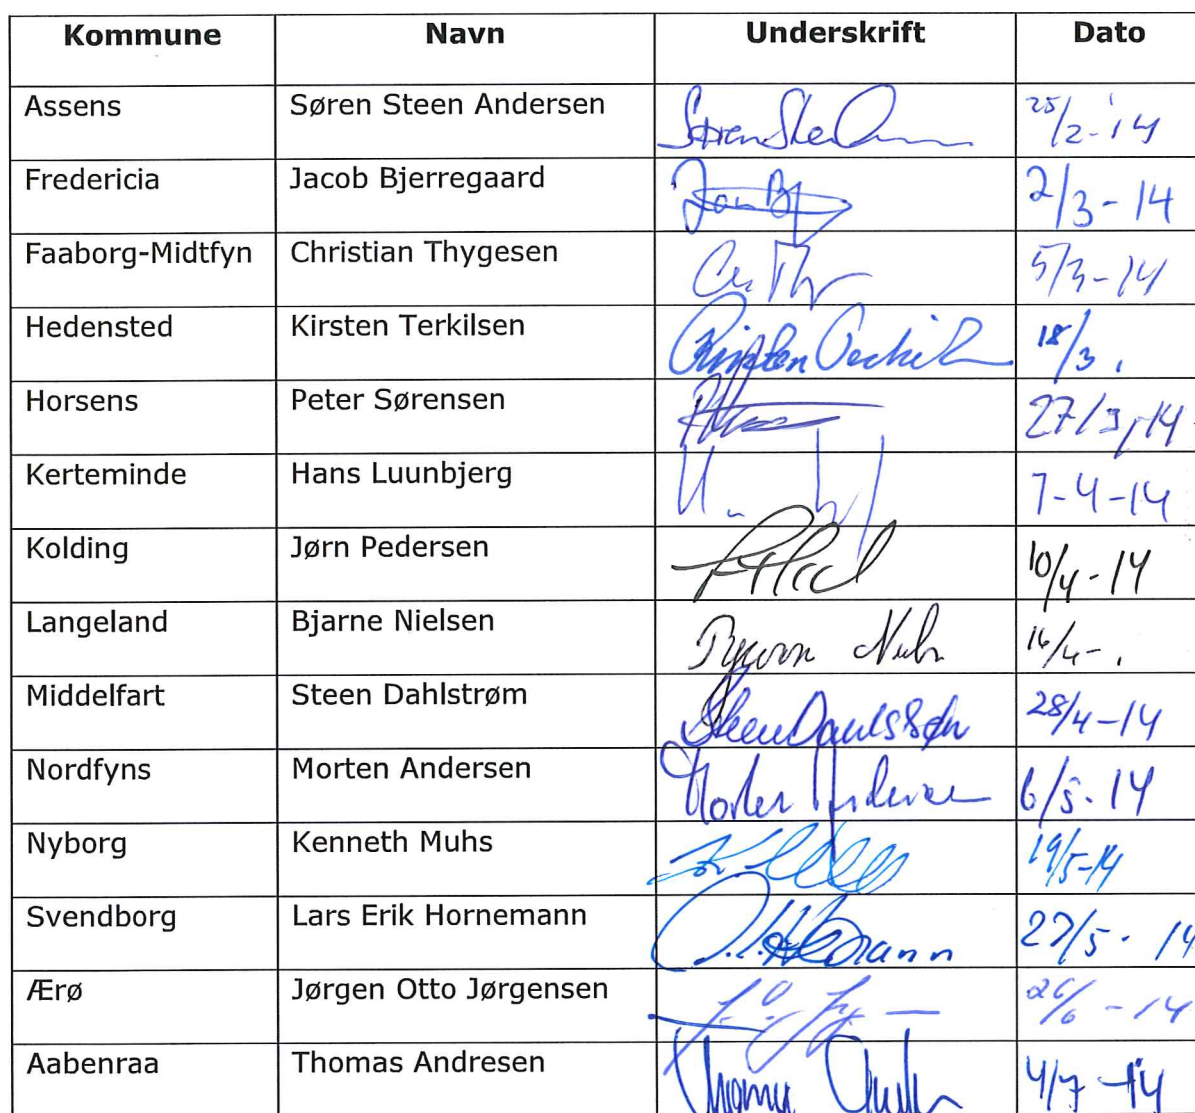 Kommune Navn Underskrift Dato
Assens Søren Steen Andersen 25/2-14
Fredericia Jacob Bjerregaard 2/3-14
Faaborg-Midtfyn Christian Thygesen 5/3-14
Hedensted Kirsten Terkilsen 18/3.
Horsens Peter Sørensen 27/3,14
Kerteminde Hans Luunbjerg 7-4-14
Kolding Jørn Pedersen 10/4-14
Langeland Bjarne Nielsen 16/4-.
Middelfart Steen Dahlstrøm 28/4-14
Nordfyns Morten Andersen 6/5-14
Nyborg Kenneth Muhs 19/5-14
Svendborg Lars Erik Hornemann 27/5-14
Ærø Jørgen Otto Jørgensen 26/6-14
Aabenraa Thomas Andresen 4/7-14